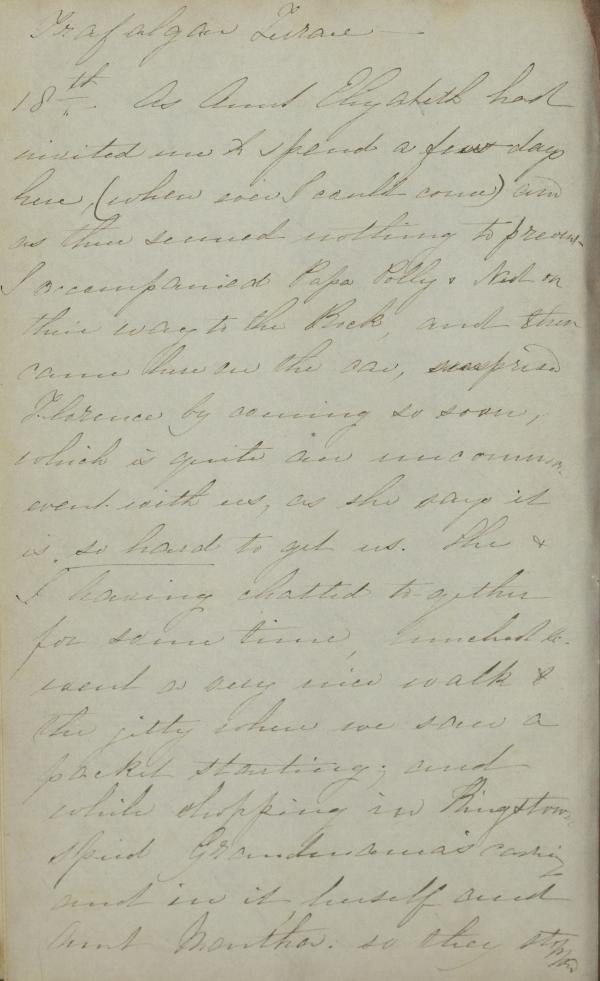 Trafalgar Terrace —
18th. As Aunt Elizabeth had
invited me to spend a few days
here, (when ever I could come) and
as there seemed nothing to prevent
I accompanied Papa Polly & Ned on
their way to the Rock, and then
came here on the car, surprised
Florence by coming so soon,
which is quite an uncommon
event with us, as she says it
is so hard to get us. She &
I having chatted together
for some time, lunched &c.
went a very nice walk to
the jetty where we saw a
packet starting; and
while shopping in Kingstown
spied Grandmama's
and in it herself and
Aunt Martha. so they stopped